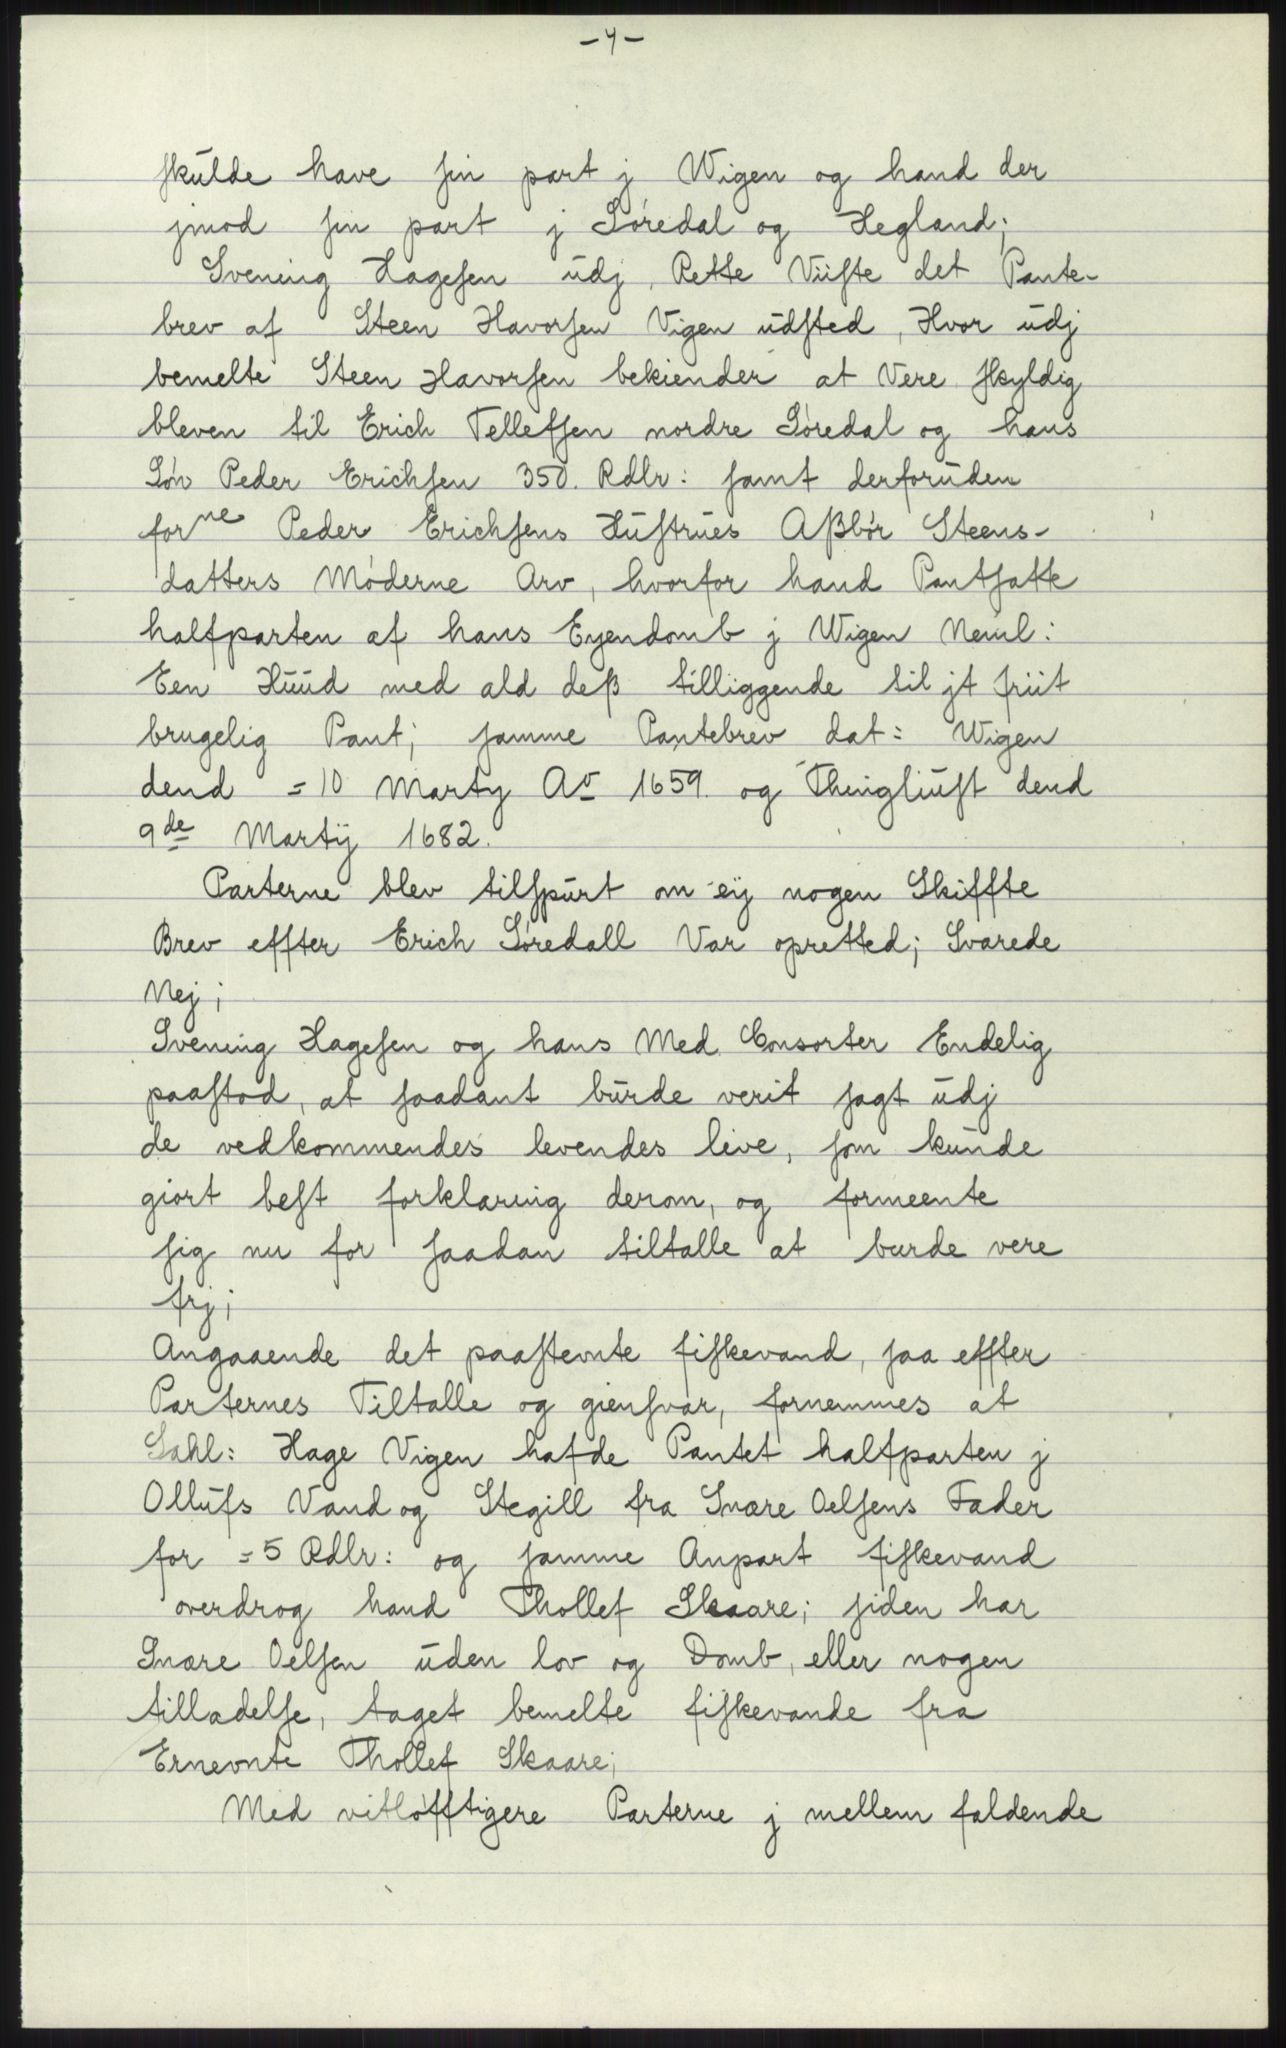 -4-
skulde have sin part j Wigen og hand der
jmod sin part j Søredal og Hegland;
Svening Hagesen udj Rette Viiste det Pante-
brev af Steen Havorsen Vigen udsted, Hvor udj
bemelte Steen Havorsen bekiender at Vere skyldig
bleven til Erich Tellefsen nordre Søredal og hans
Søn Peder Erichsen 350. Rdlr: samt derforuden
forne Peder Erichsens Hustrues Aßbør Steens-
datters Møderne Arv, hvorfor hand Pantsatte
halfparten af hans Eyendomb j Wigen Neml:
Een Huud med ald deß tilliggende til jt friit
brugelig Pant; samme Pantebrev dat: Wigen
dend = 10 Marty Ao 1659. og Thingliust dend
9de Martÿ 1682.
Parterne blev tilspurt om eÿ nogen Skiffte
Brev effter Erich Søredall Var opretted; Svarede
Nej;
Svening Hagesen og hans Med Consorter Endelig
paastod, at saadant burde verit sagt udj
de vedkommendes levendes live, som kunde
giort best forklaring derom, og formeente
sig nu for saadan tiltalle at burde vere
frj;
Angaaende det paastevnte fiskevand, saa effter
Parternes Tiltalle og giensvar, fornemmes at
Sahl: Hage Vigen hafde Pantet halfparten j
Ollufs Vand og Stegill fra Snare Oelsens Fader
for = 5 Rdlr: og samme Anpart fiskevand
overdrog hand Thollef Skaare; siden har
Snare Oelsen uden lov og Domb, eller nogen
tilladelse, taget bemelte fiskevande fra
Ernevnte Thollef Skaare;
Med vitløfftigere Parterne j mellem faldende